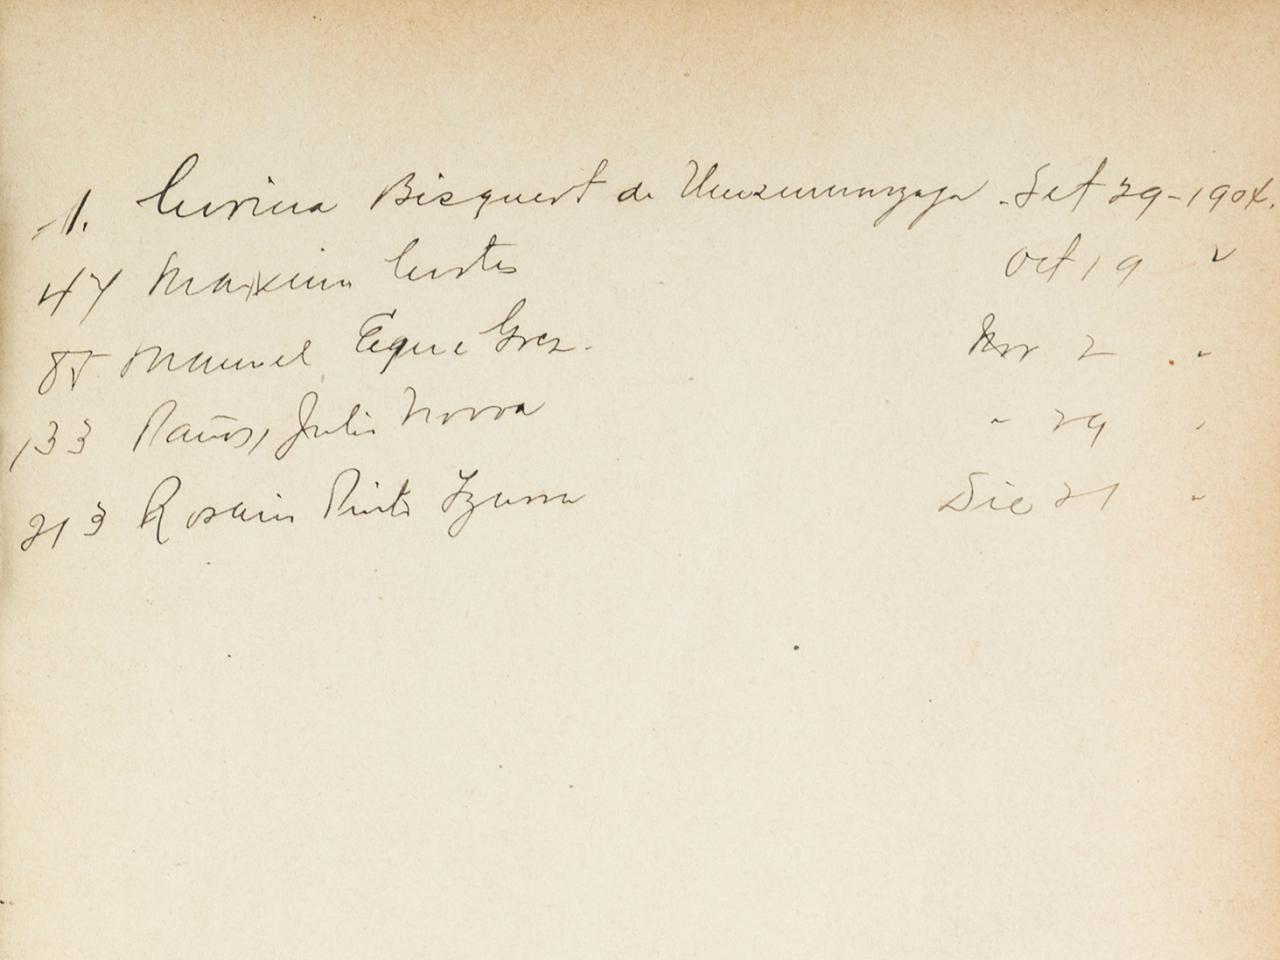 1. Corina Bisquert de Unzurrunzaga. Set 29-1904.
47 Maximo Cortes Oct 19 "
85 Manuel Egui Grez. Nov 2 "
133 Julio " 29 "
213 Rosario Pinto Dic 21 "